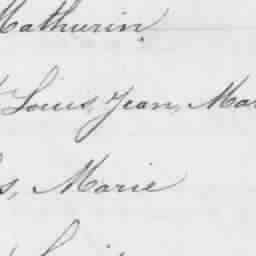 Mathurin
Louis, Jean, Mar
s, Marie